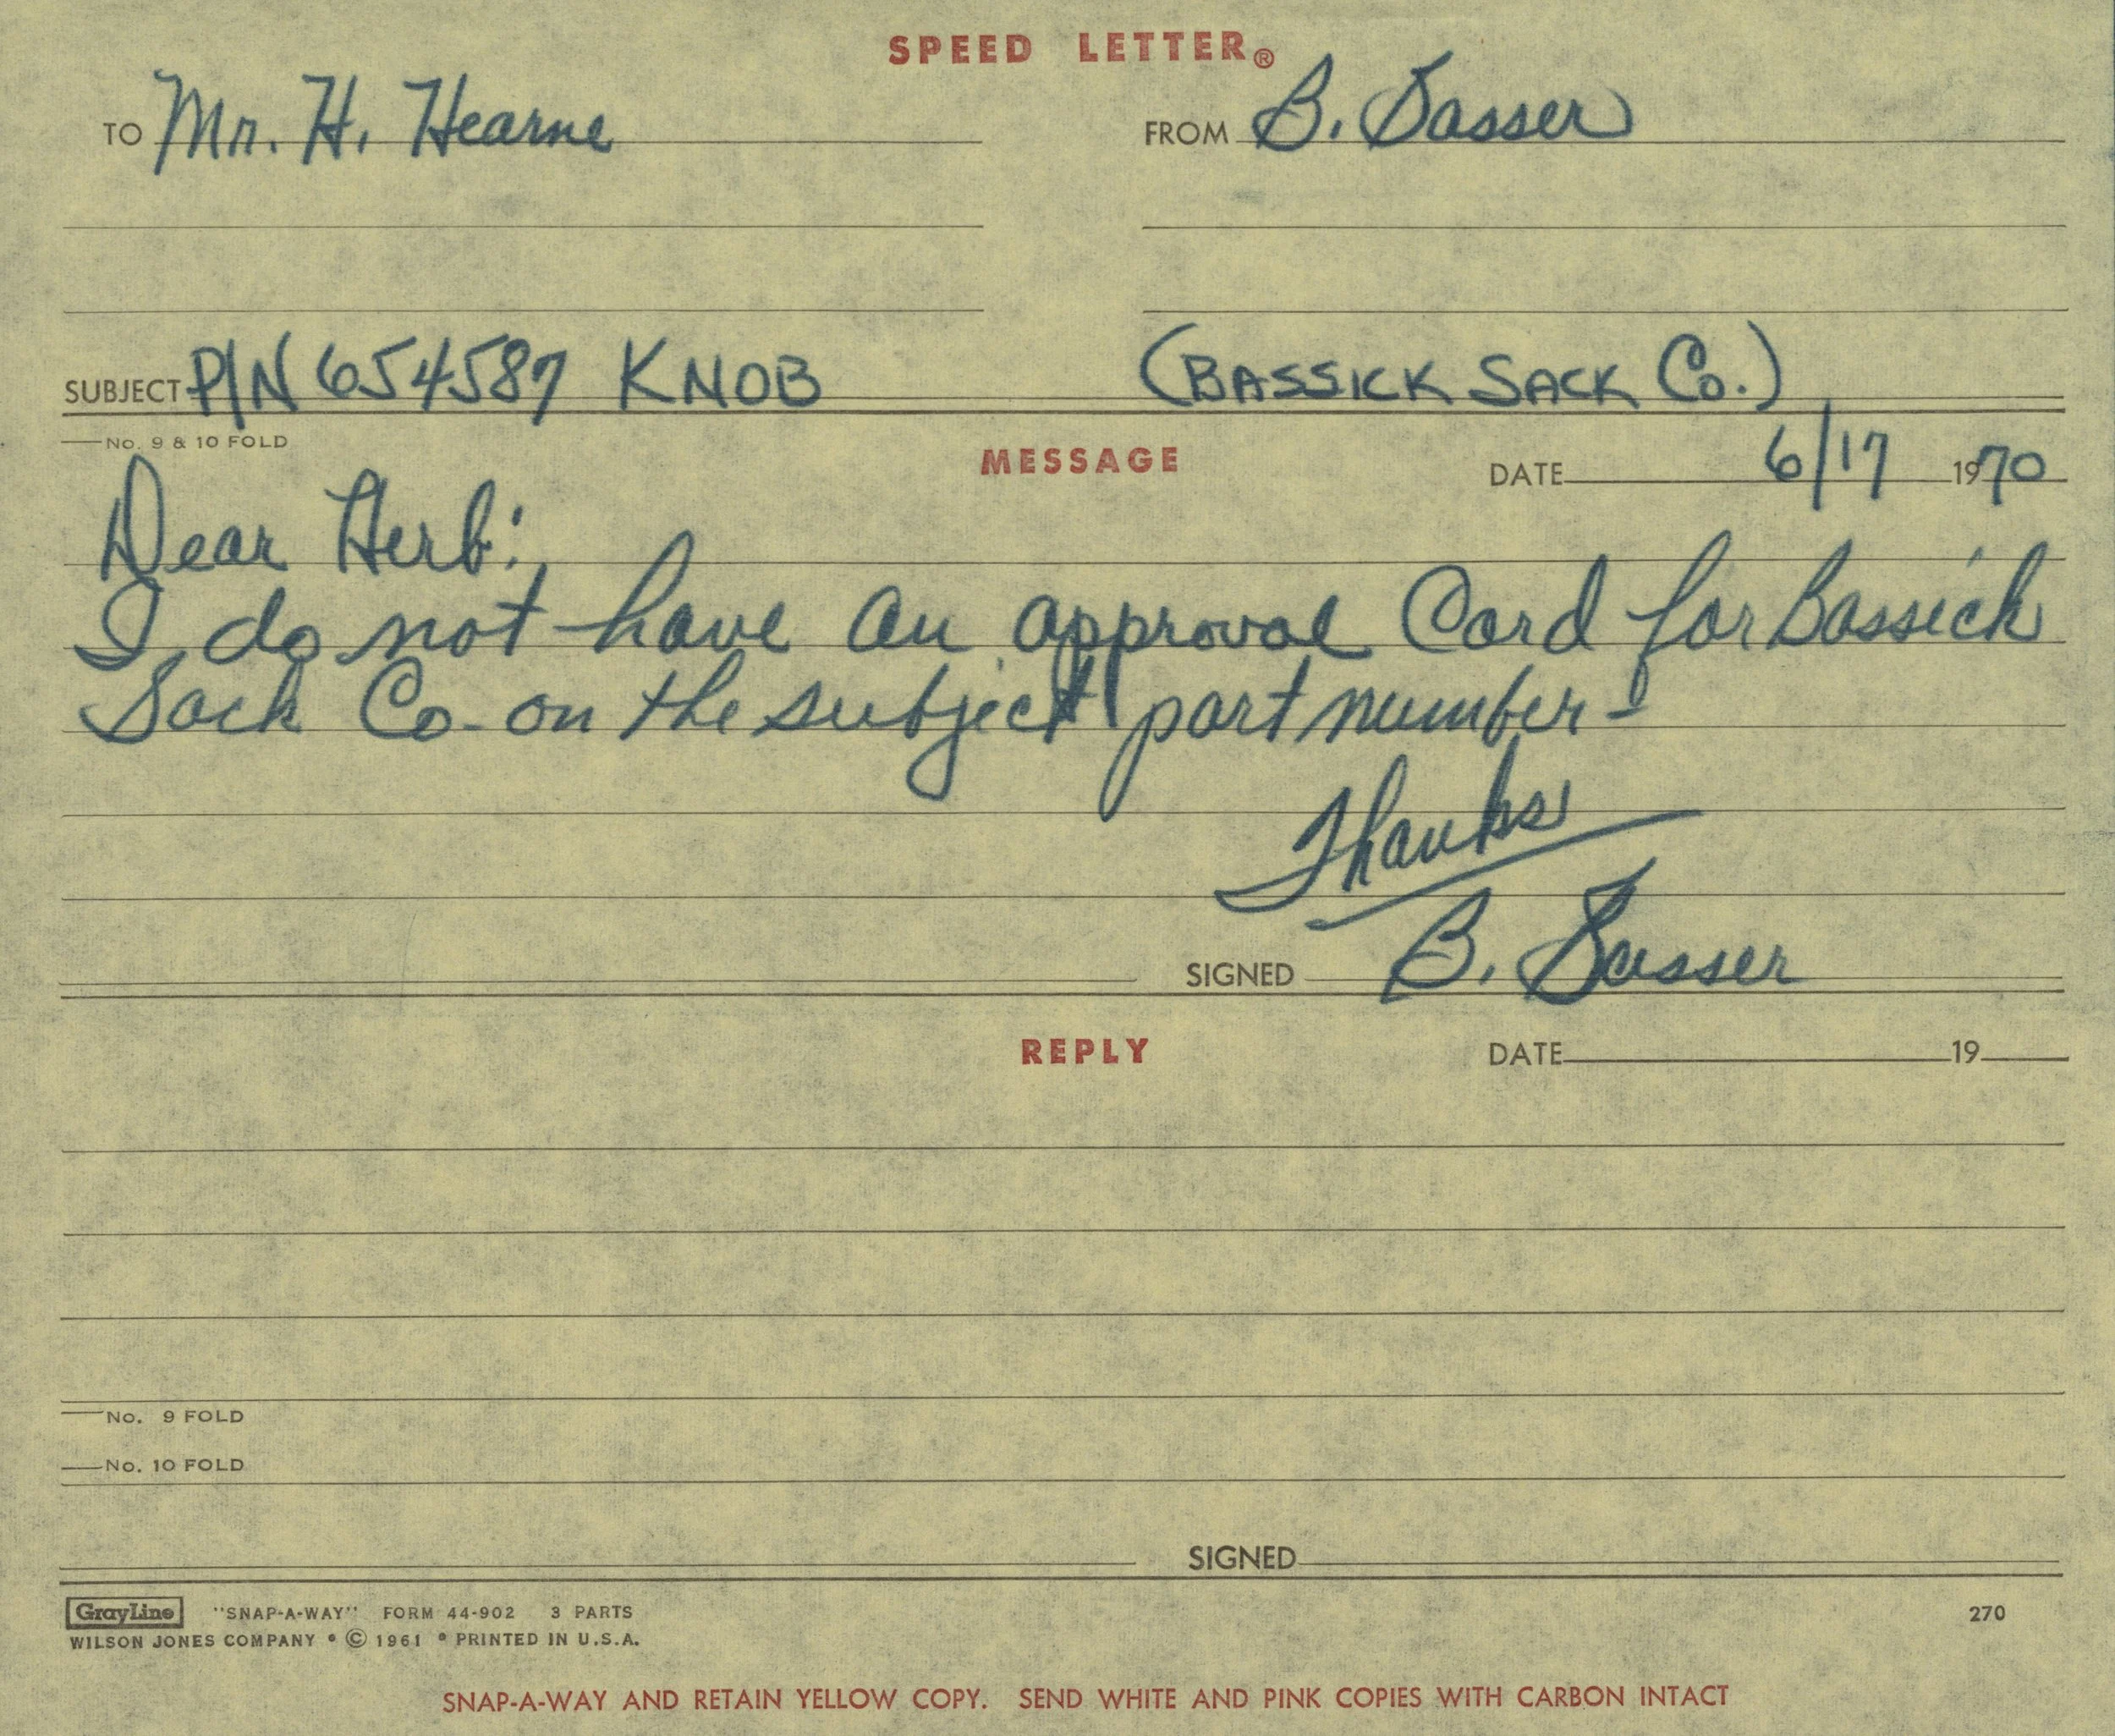 SPEED LETTER®
TO Mr. H. Hearne
FROM B. Sasser
SUBJECT P/N 654587 KNOB (BASSICK SACK Co.)
No. 9 & 10 FOLD
MESSAGE
DATE 6/17 1970
Dear Herb:
I do not have an approval Card for Bassick
Sack Co. on the subject part number-
Thanks
SIGNED B. Sasser
REPLY
DATE 19
No. 9 FOLD
No. 10 FOLD
SIGNED
GrayLine "SNAP-A-WAY" FORM 44-902 3 PARTS 270
WILSON JONES COMPANY • © 1961 • PRINTED IN U.S.A.
SNAP-A-WAY AND RETAIN YELLOW COPY. SEND WHITE AND PINK COPIES WITH CARBON INTACT